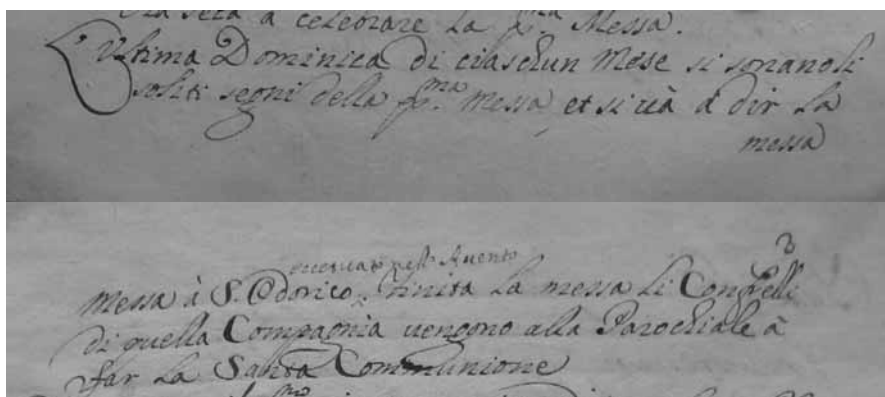 sera a celebrare la p.ma Messa.
L'Ultima Dominica di ciaschun Mese si sonano li
soliti segni della p.ma messa, et si uà à dir la
messa
3
eccetuato nell' Auento
messa à S. Odorico, finita la messa li Confrelli
di quella Compagnia uengono alla Parochiale à
far la Santa Communione